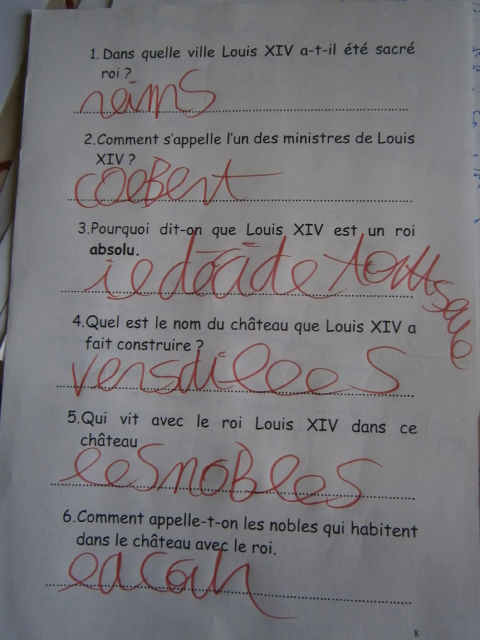 1. Dans quelle ville Louis XIV a-t-il été sacré
roi ?
reims
2.Comment s'appelle l'un des ministres de Louis
XIV ?
colbert
3.Pourquoi dit-on que Louis XIV est un roi
absolu.
il décide tout seul
4.Quel est le nom du château que Louis XIV a
fait construire ?
versailles
5.Qui vit avec le roi Louis XIV dans ce
château
les nobles
6.Comment appelle-t-on les nobles qui habitent
dans le château avec le roi.
la cour
8